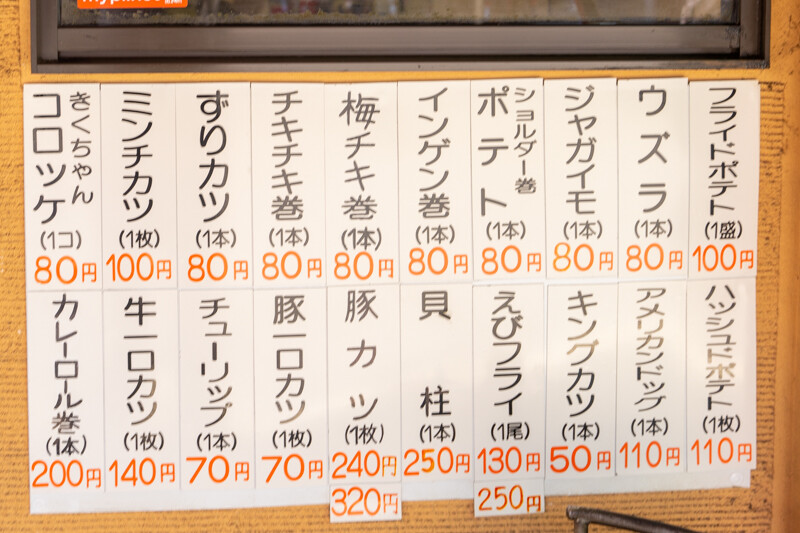 きくちゃん
コロッケ
(1コ)
80円
ミンチカツ
(1枚)
100円
ずりカツ
(1本)
80円
チキチキ巻
(1本)
80円
梅チキ巻
(1本)
80円
インゲン巻
(1本)
80円
ショルダー巻
ポテト
(1本)
80円
ジャガイモ
(1本)
80円
ウズラ
(1本)
80円
フライドポテト
(1盛)
100円
カレーロール巻
(1本)
200円
牛一口カツ
(1枚)
140円
チューリップ
(1本)
70円
豚一口カツ
(1枚)
70円
豚カツ
(1枚)
240円
320円
貝柱
(1本)
250円
えびフライ
(1尾)
130円
250円
キングカツ
(1本)
50円
アメリカンドッグ
(1本)
110円
ハッシュドポテト
(1枚)
110円